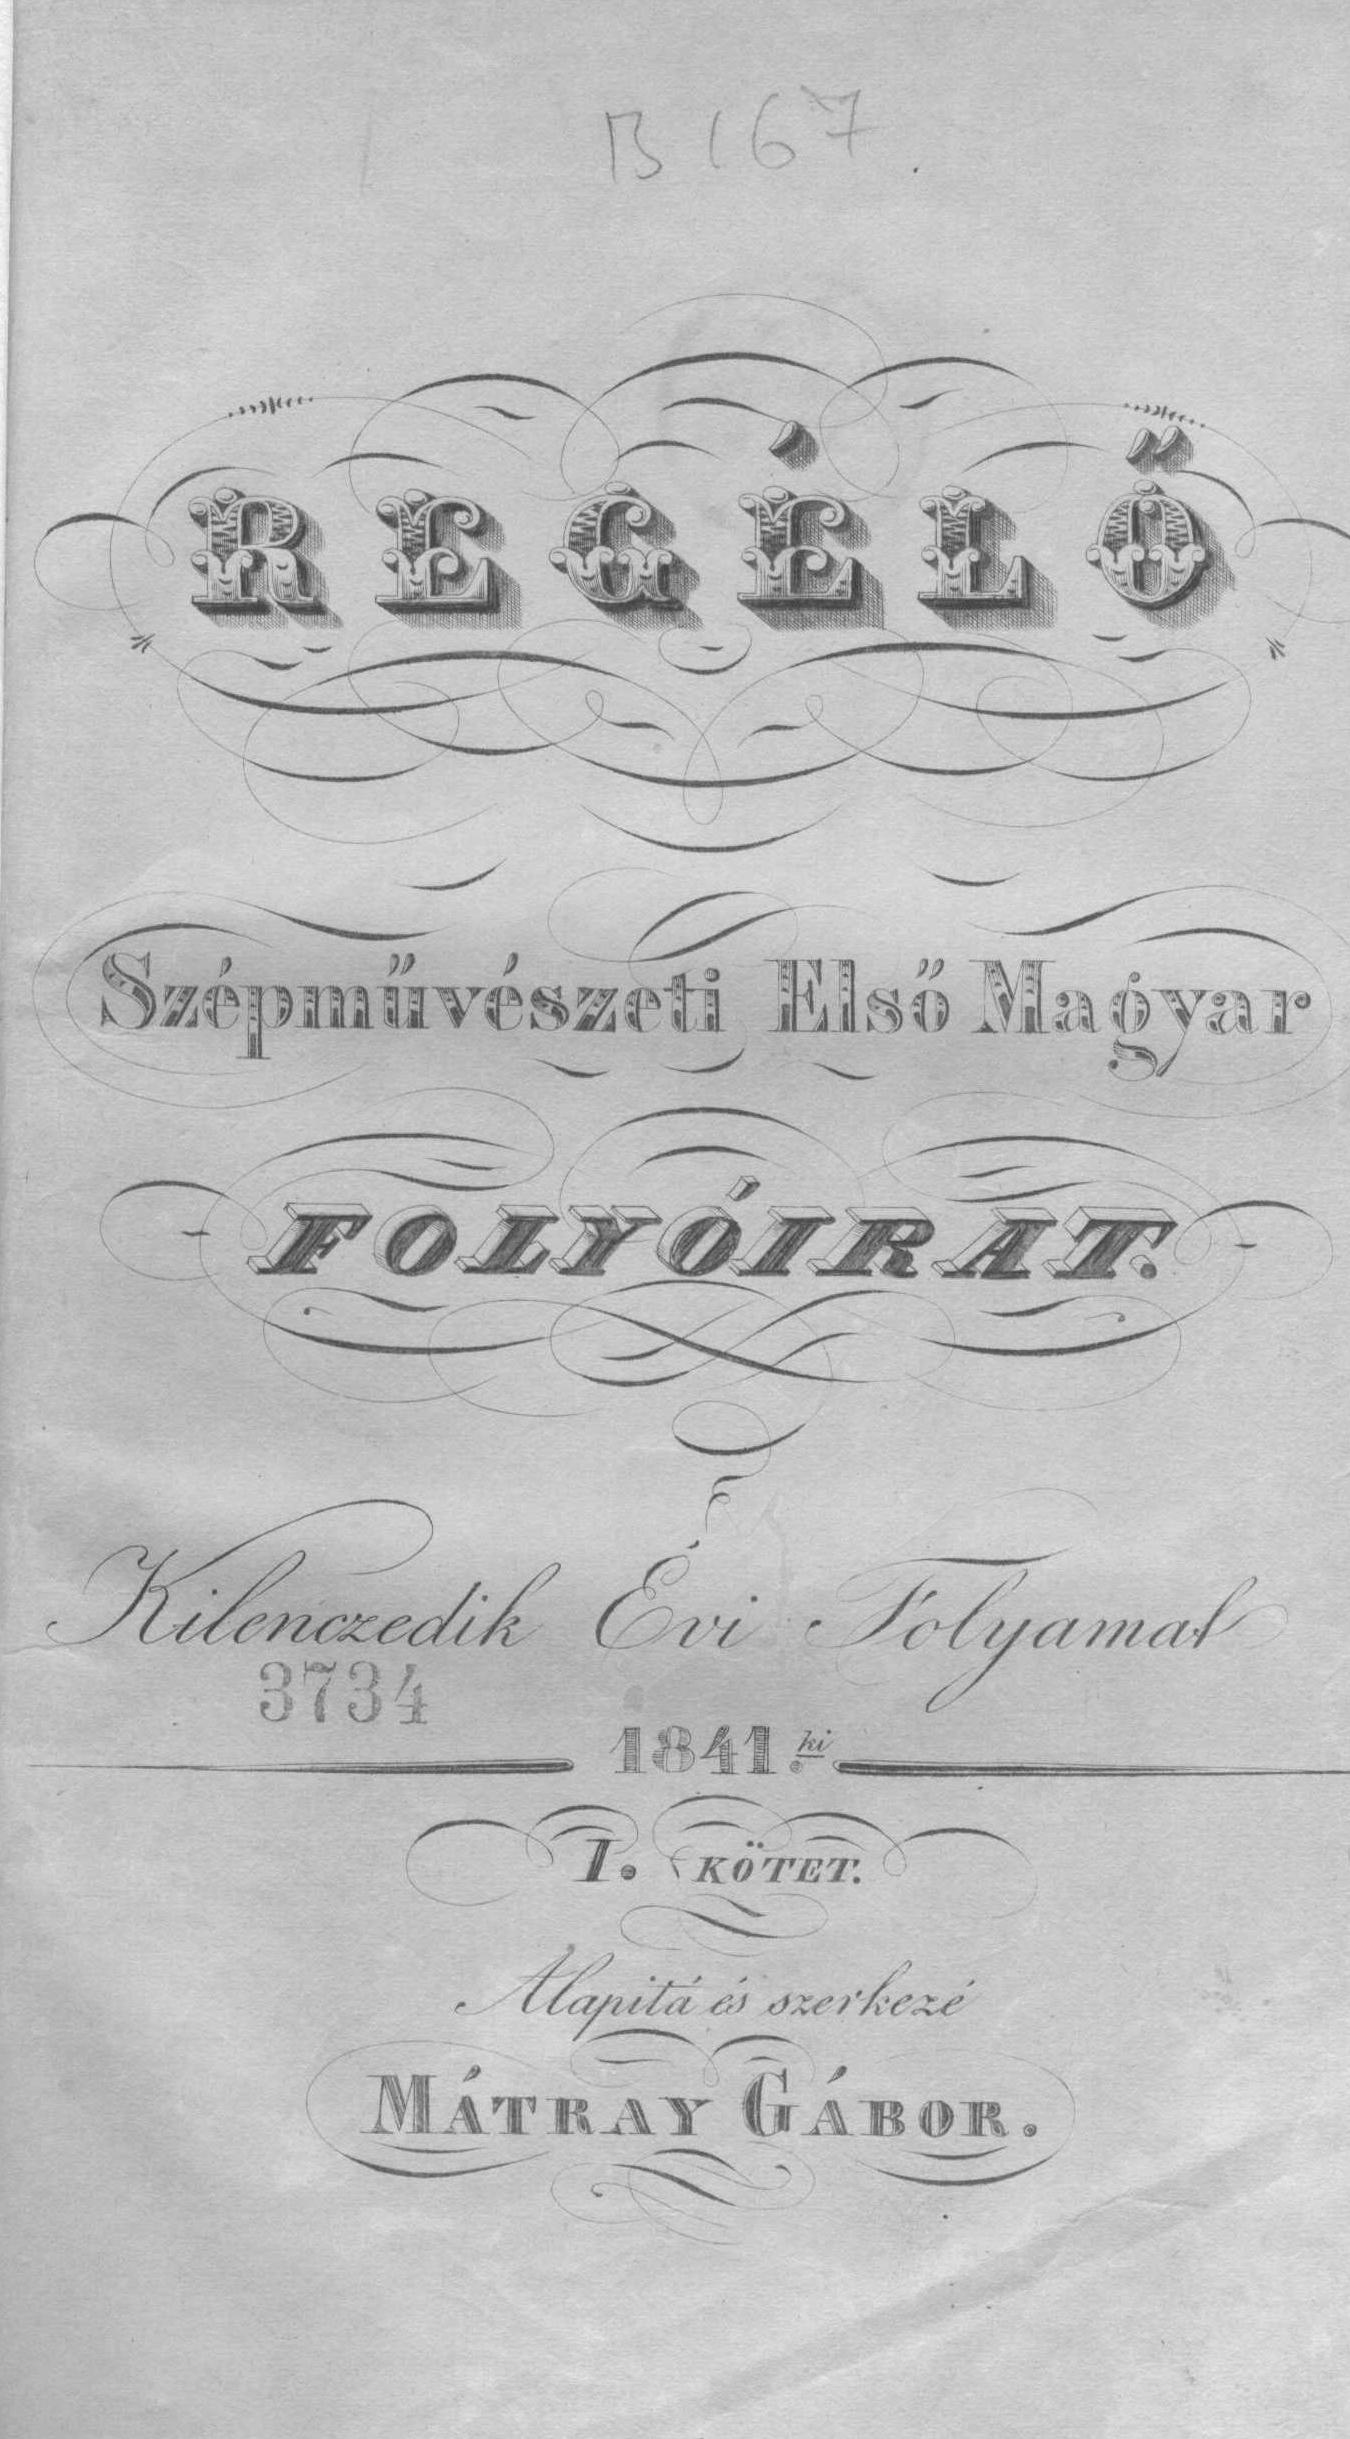 B 167.
REGÉLŐ
Szépművészeti Első Magyar
FOLYÓIRAT.
Kilenczedik Évi Folyamat
3734
1841.ki
I. KÖTET.
Alapitá és szerkezé
MÁTRAY GÁBOR.